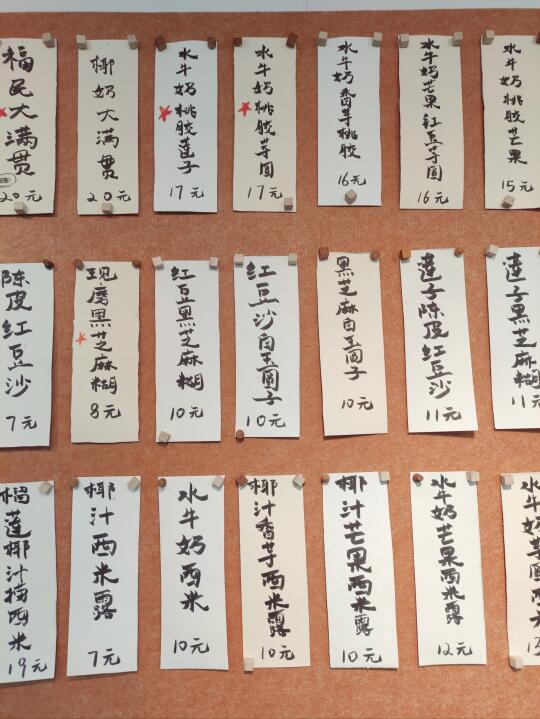 福民大满贯
20元
椰奶大满贯
20元
水牛奶桃胶莲子
17元
水牛奶桃胶芋圆
17元
水牛奶香芋桃胶
16元
水牛奶芒果红豆芋圆
16元
水牛奶桃胶芒果
15元
陈皮红豆沙
7元
现磨黑芝麻糊
8元
红豆黑芝麻糊
10元
红豆沙白玉圆子
10元
黑芝麻白玉圆子
10元
莲子陈皮红豆沙
11元
莲子黑芝麻糊
11元
榴莲椰汁捞西米
19元
椰汁西米露
7元
水牛奶西米
10元
椰汁香芋西米露
10元
椰汁芒果西米露
10元
水牛奶芒果西米露
12元
水牛奶芋圆西米
13